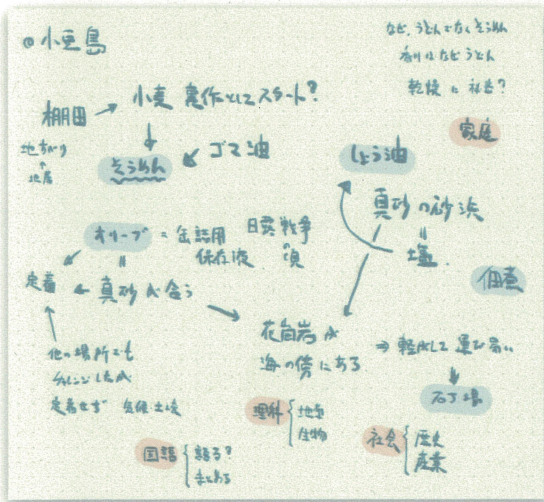 小豆島
なぜ、うどんでなくそうめん
香川はなぜうどん
乾燥に秘密?
棚田 → 小麦 裏作としてスタート?
地すべり
地層
そうめん
ゴマ油
家庭
しょう油
真砂の砂浜
塩
佃煮
オリーブ = 缶詰用
保存液
日露戦争
の頃
定着 ← 真砂が合う
他の場所でも
チャレンジしたが
定着せず 気候・土壌
花崗岩が
海の傍にある
⇒
石丁場
理科 { 地学
生物
社会 { 歴史
産業
国語 { 語る?
まとめる